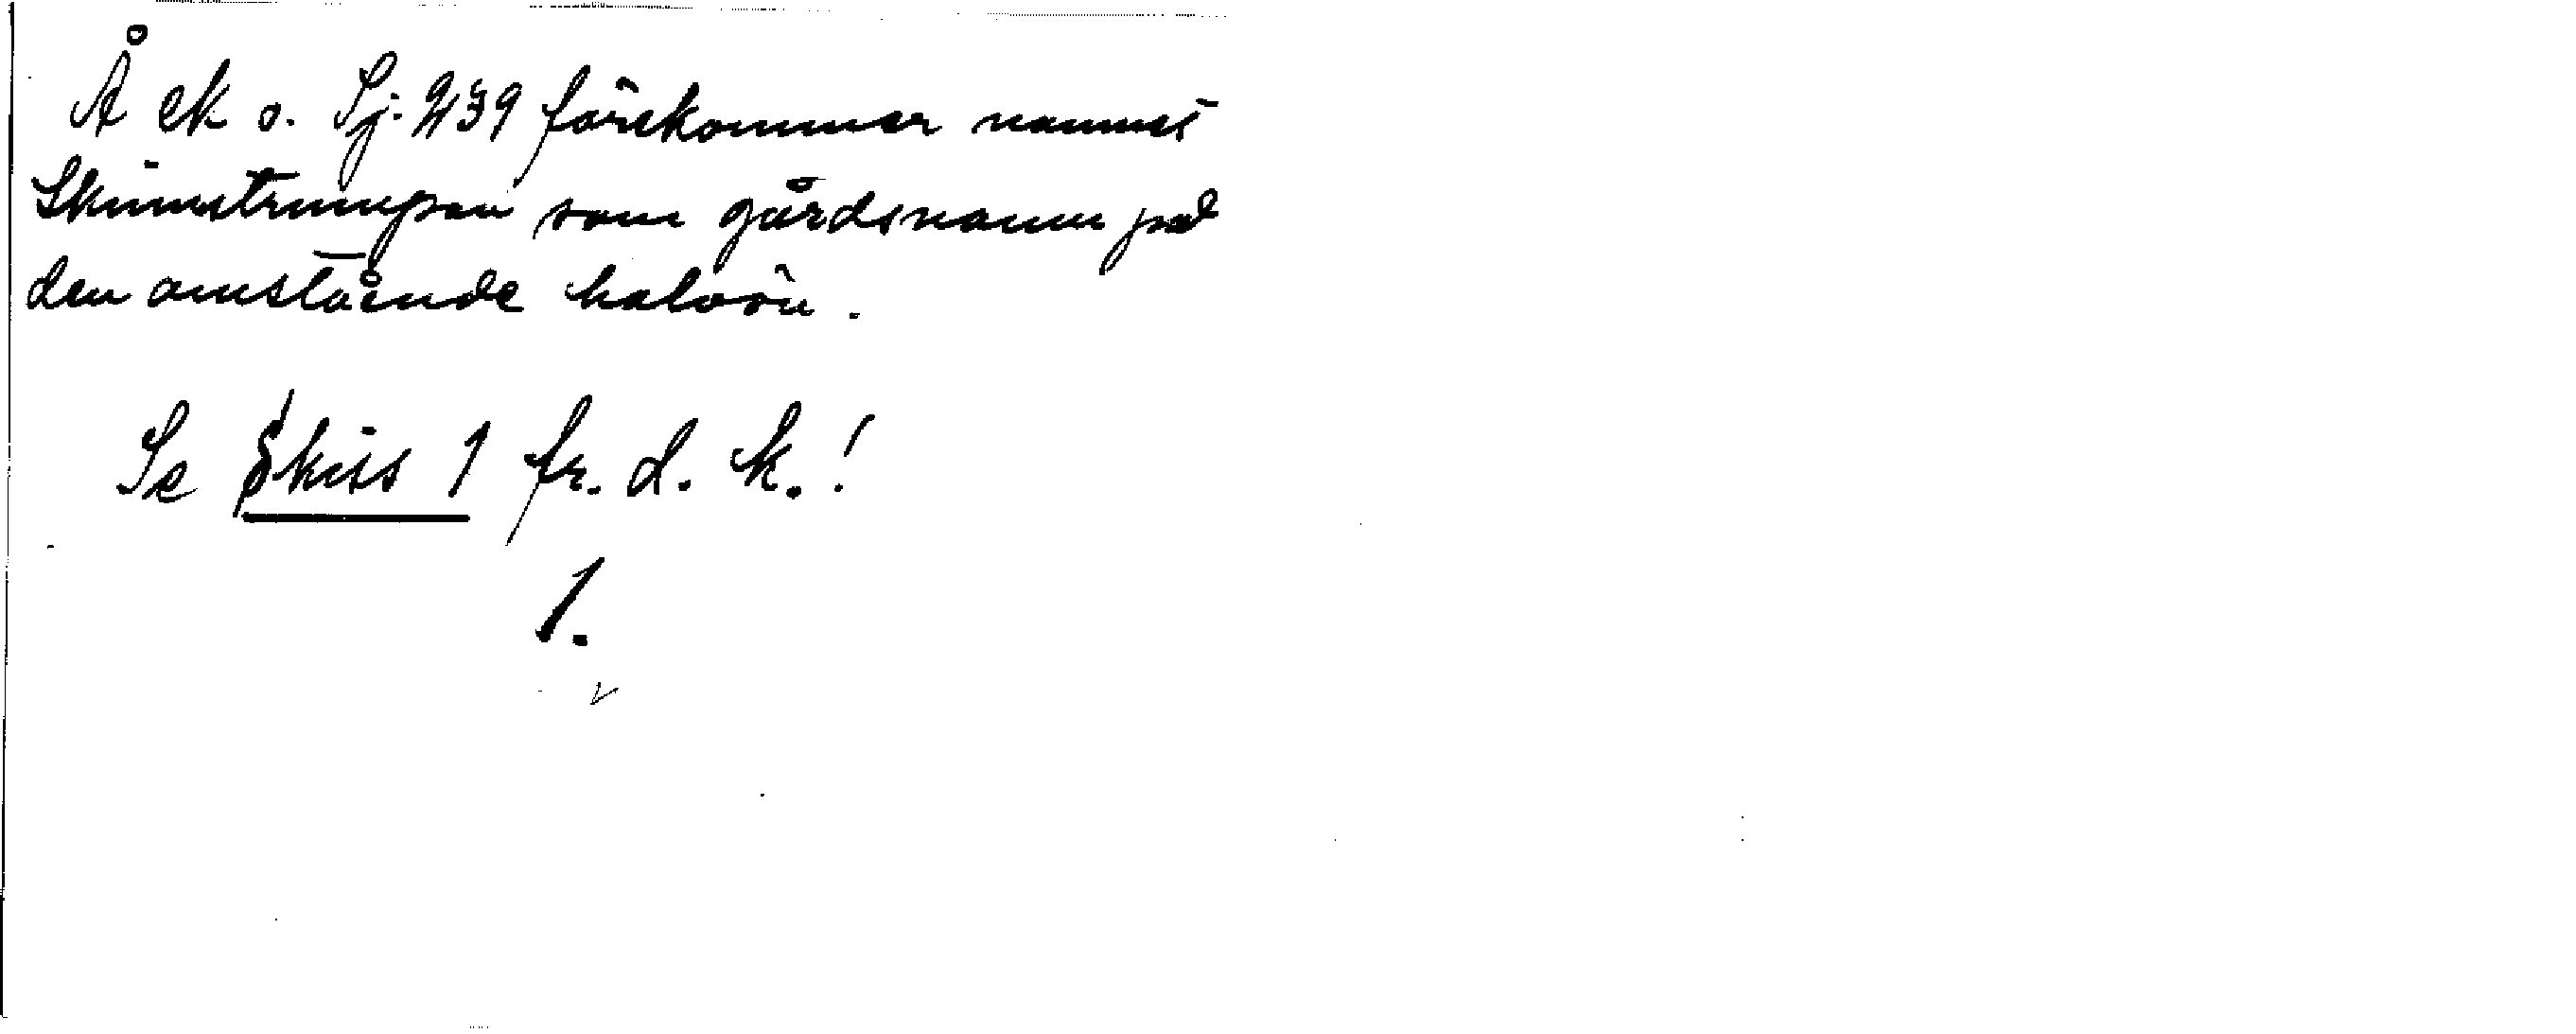 Å ek o. Sj. 939 förekommer namnet
Skinnstrumpan som gårdsnamn på
den omstående halvön.
Se Skiss 1 fr. d. k.!
1.